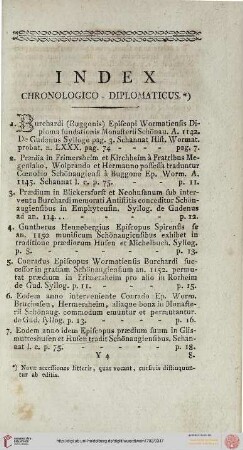 INDEX
CHRONOLOGICO - DIPLOMATICUS. *)
a. Burchardi (Buggonis) Episcopi Wormatiensis Di-
ploma fundationis Monasterii Schönau. A. 1142.
De Gudenus Sylloge pag. 3. Schannat Hist. Wormat.
probat. n. LXXX. pag. 74 - - - pag. 7.
2. Prædia in Frimersheim et Kirchheim à Fratribus
Wolprando et Hermanno possessa traduntur
Cœnobio Schönaugiensi à Buggone Ep. Worm. A.
1145. Schannat l. c. p. 75. - - p. 11.
3. Prædium in Blickersforst et Neobusnum sub inter-
ventu Burchardi memorati Antistitis conceditur Schön-
augiensibus in Emphyteusin. Syllog. de Gudenus
ad an. 114... - - - p. 12.
4. Guntherus Hennebergius Episcopus Spirensis
an. 1150 munificum Schönaugiensibus exhibet in
traditione prædiorum Husen et Michelbuch. Syllog.
p. 8. - - - p. 13.
5. Conradus Episcopus Wormatiensis Burchardi suc-
cessor in gratiam Schönaugiensium an. 1152. permu-
tat prædium in Frimersheim pro alio in Rorheim
de Gud. Sylleg. p. 11. - - p. 15.
6. Eodem anno interveniente Conrado Ep. Worm.
Bruchsen, Hermersheim, aliaque bona in Monaste-
rii Schönaug. commodum emuntur et permutantur.
de Gud. Sylleg. p. 13. - - p. 16.
7. Eodem anno idem Episcopus prædium suum in Glis-
mutrohusen et Husen tradit Schönaugiensibus. Schan-
nat l. c. p. 75. - - - p. 18.
Y 4 8.
*) Novæ accessiones litteris, quas vocant, cursivis distinguun-
tur ab editis.